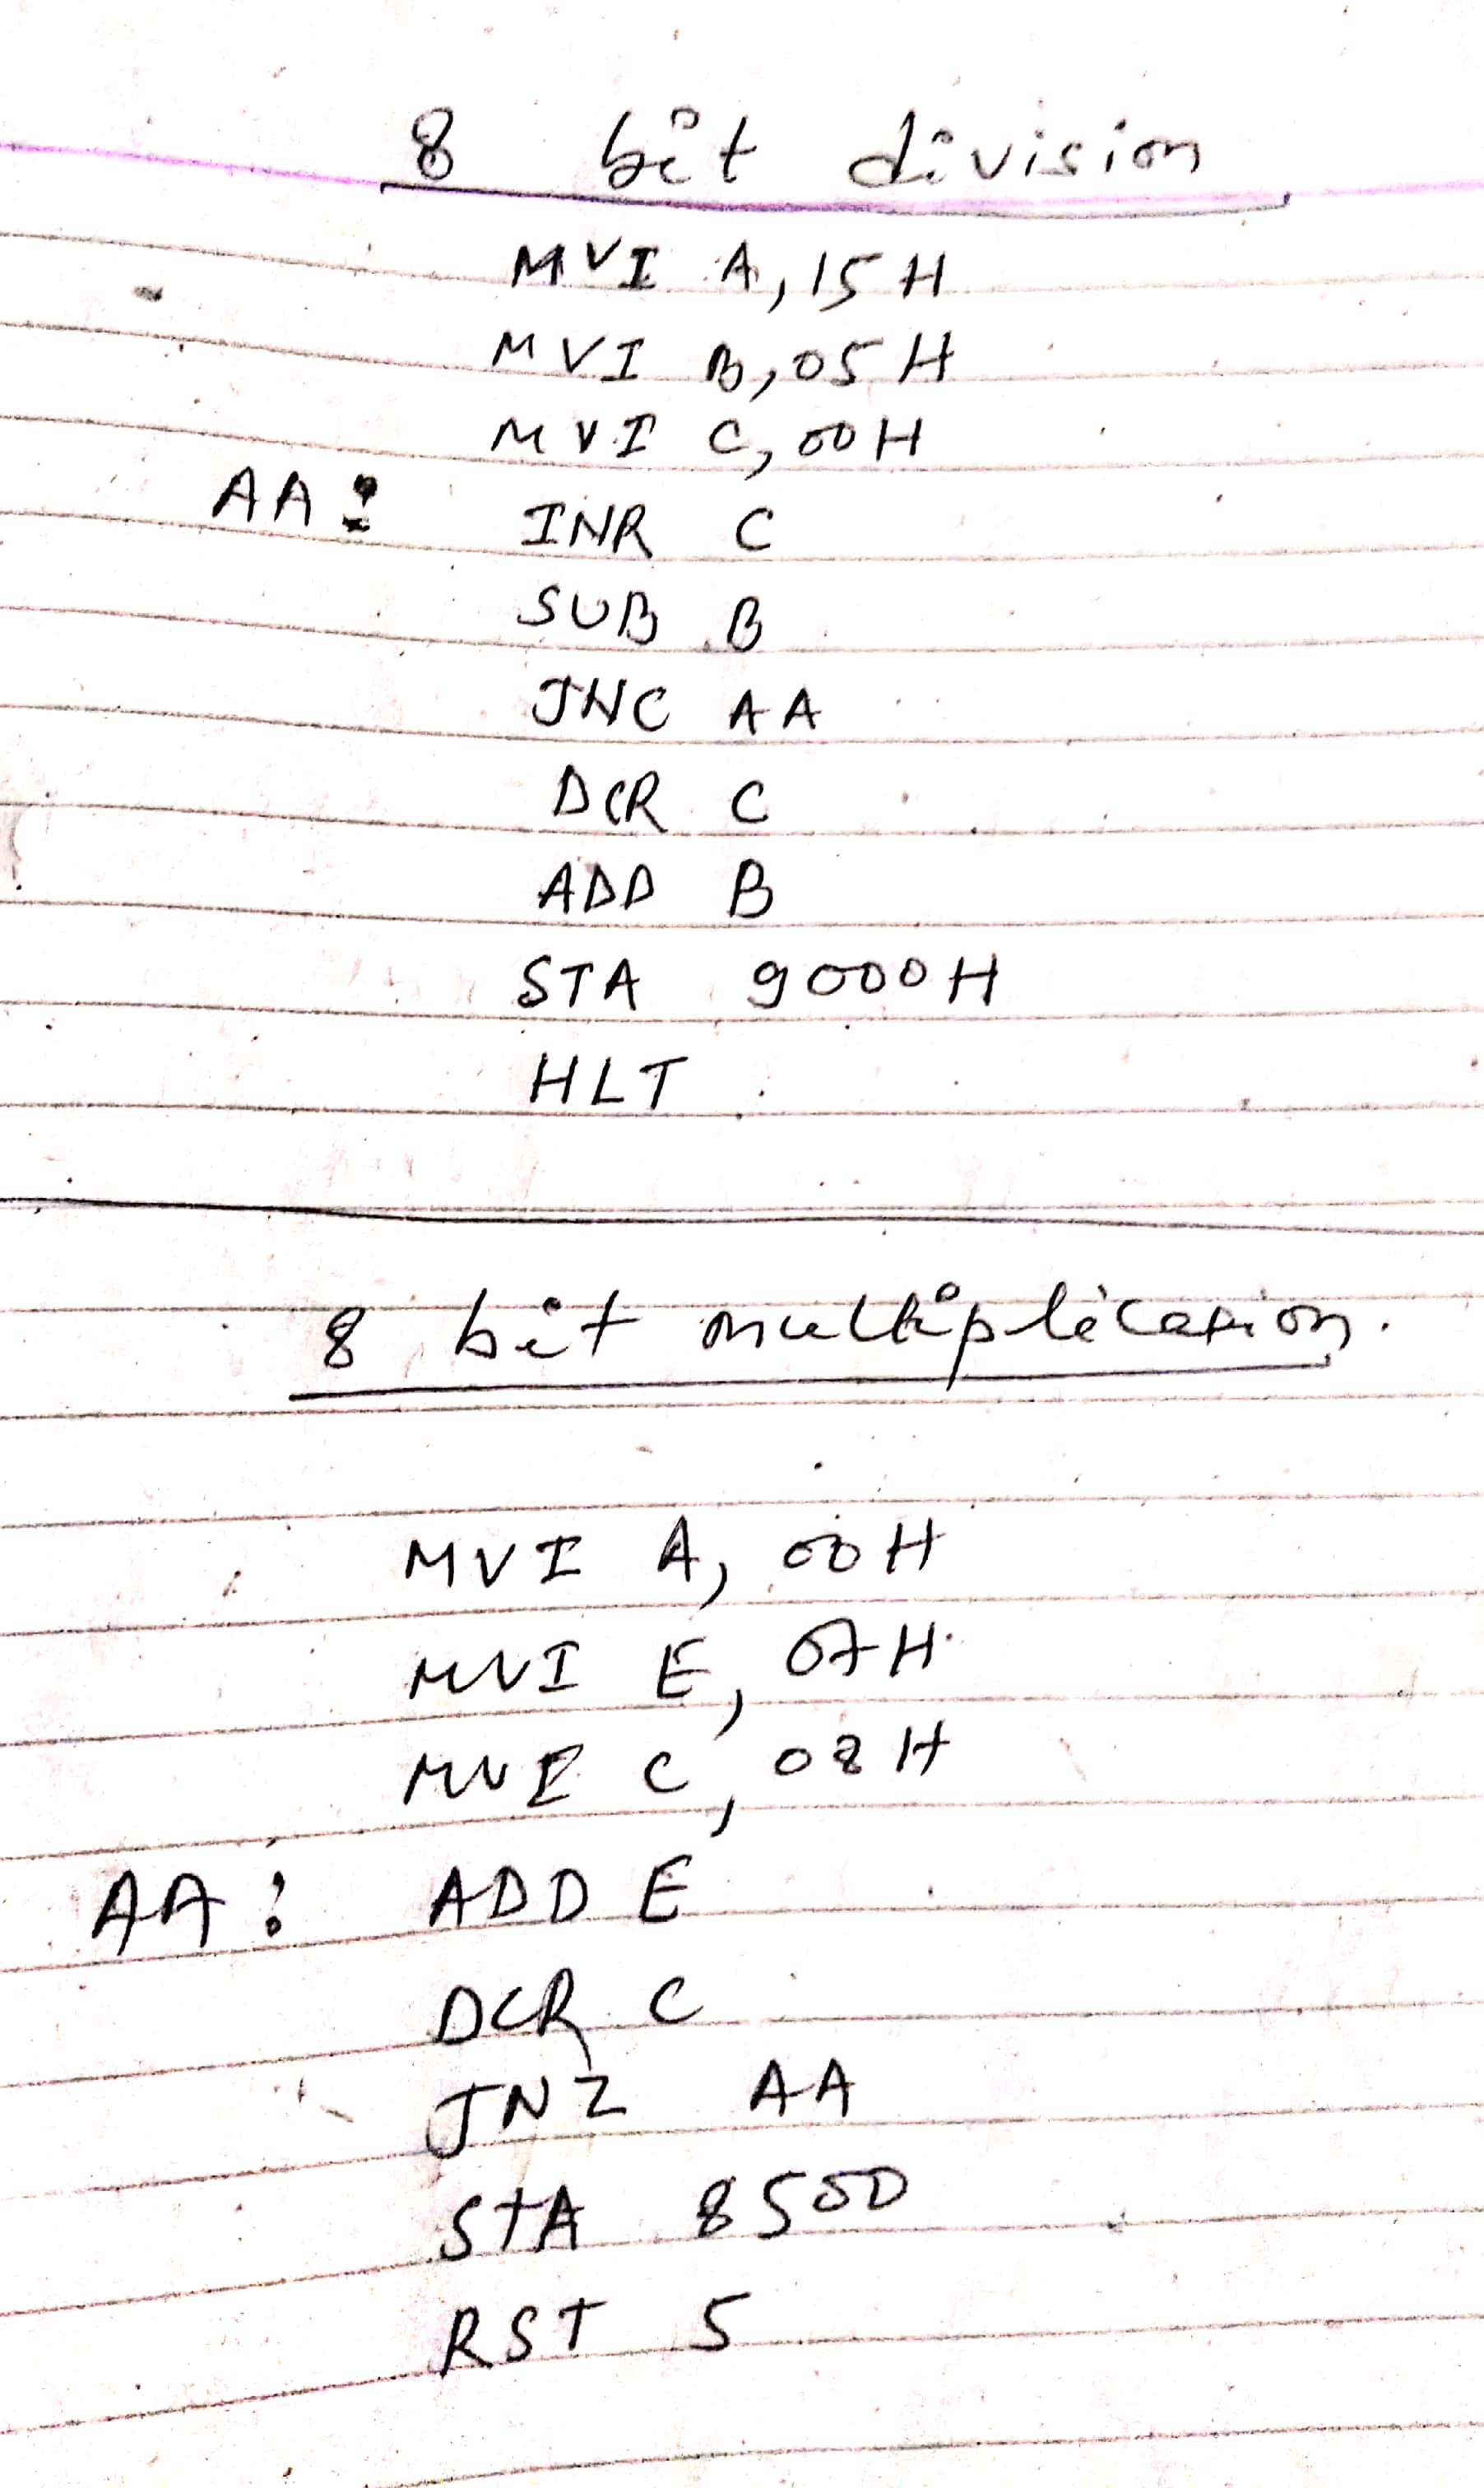 8 bit division
MVI A, 15 H
MVI B, 05 H
MVI C, 00 H
AA: INR C
SUB B
JNC AA
DCR C
ADD B
STA 9000 H
HLT
8 bit multiplication.
MVI A, 00 H
MVI E, 07 H
MVI C, 08 H
AA: ADD E
DCR C
JNZ AA
STA 8500
RST 5